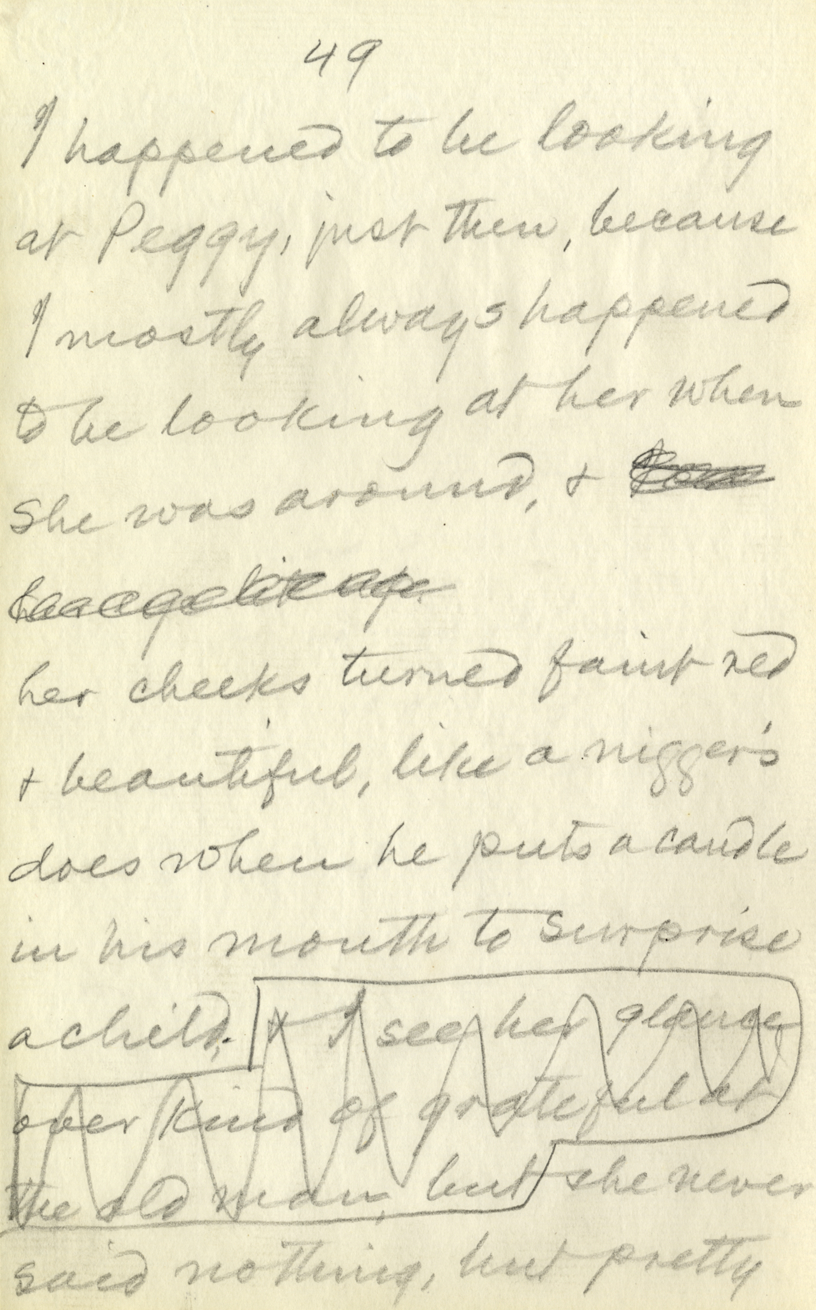 49
I happened to be looking
at Peggy, just then, because
I mostly always happened
to be looking at her when
she was around, &
her cheeks turned faint red
& beautiful, like a nigger's
does when he puts a candle
in his mouth to surprise
a child. & I see her glance
over kind of grateful at
the old man, but she never
said nothing, but pretty